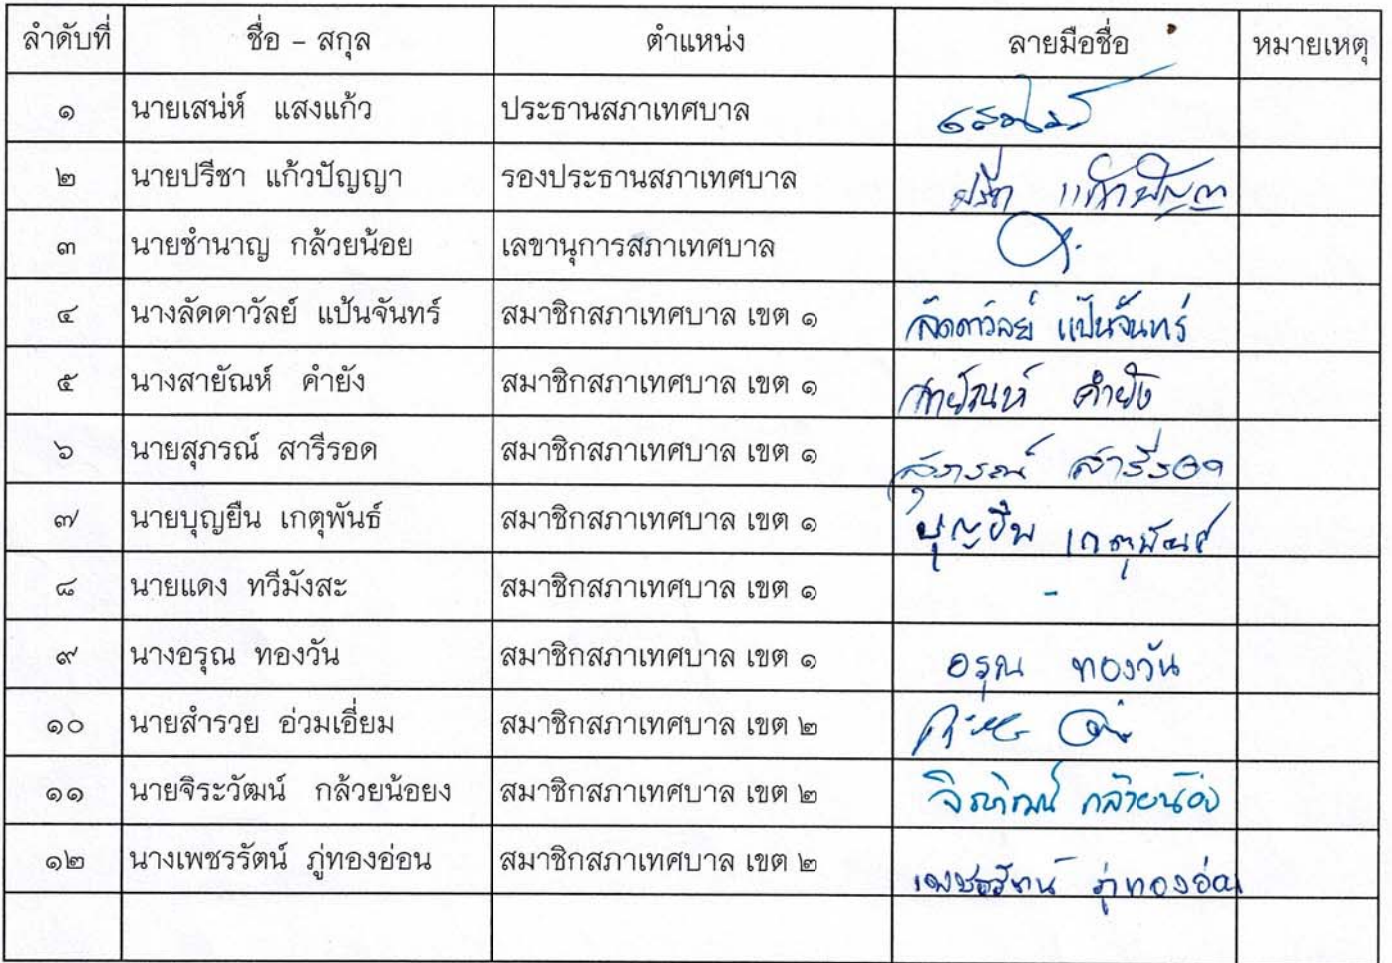 ลำดับที่ ชื่อ - สกุล ตำแหน่ง ลายมือชื่อ หมายเหตุ
๑ นายเสน่ห์ แสงแก้ว ประธานสภาเทศบาล
๒ นายปรีชา แก้วปัญญา รองประธานสภาเทศบาล ปรีชา แก้วปัญญา
๓ นายชำนาญ กล้วยน้อย เลขานุการสภาเทศบาล
๔ นางลัดดาวัลย์ แป้นจันทร์ สมาชิกสภาเทศบาล เขต ๑ ลัดดาวัลย์ แป้นจันทร์
๕ นางสายัณห์ คำยัง สมาชิกสภาเทศบาล เขต ๑ สายัณห์ คำยัง
๖ นายสุภรณ์ สารีรอด สมาชิกสภาเทศบาล เขต ๑ สุภรณ์ สารีรอด
๗ นายบุญยืน เกตุพันธ์ สมาชิกสภาเทศบาล เขต ๑ บุญยืน เกตุพันธ์
๘ นายแดง ทวีมังสะ สมาชิกสภาเทศบาล เขต ๑ -
๙ นางอรุณ ทองวัน สมาชิกสภาเทศบาล เขต ๑ อรุณ ทองวัน
๑๐ นายสำรวย อ่วมเอี่ยม สมาชิกสภาเทศบาล เขต ๒
๑๑ นายจิระวัฒน์ กล้วยน้อยง สมาชิกสภาเทศบาล เขต ๒ จิระวัฒน์ กล้วยน้อย
๑๒ นางเพชรรัตน์ ภู่ทองอ่อน สมาชิกสภาเทศบาล เขต ๒ เพชรรัตน์ ภู่ทองอ่อน